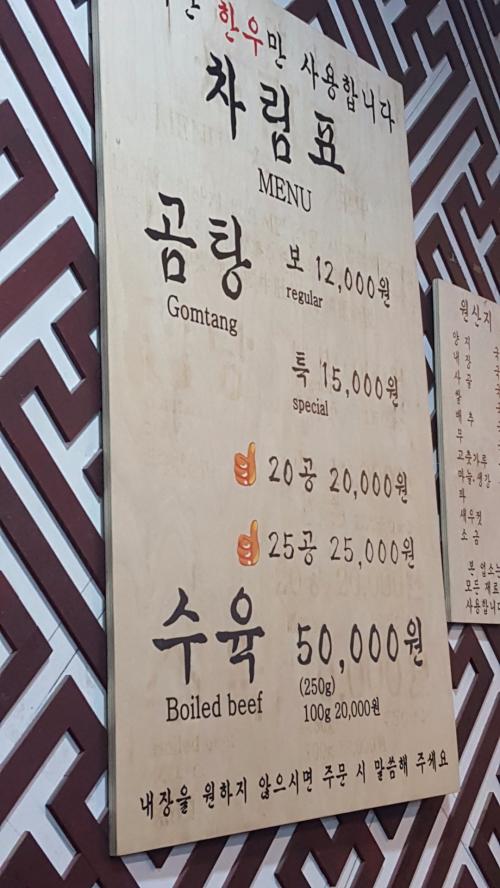 한우만 사용합니다
차림표
MENU
곰탕 보 12,000원
Gomtang regular
특 15,000원
special
20공 20,000원
25공 25,000원
수육 50,000원
Boiled beef (250g)
100g 20,000원
내장을 원하지 않으시면 주문 시 말씀해 주세요
원산지
양지 국
내장 국
사골 국
쌀
배추
무
고춧가루
마늘,생강
파
새우젓
소금
본 업소는
모든 재료
사용합니다